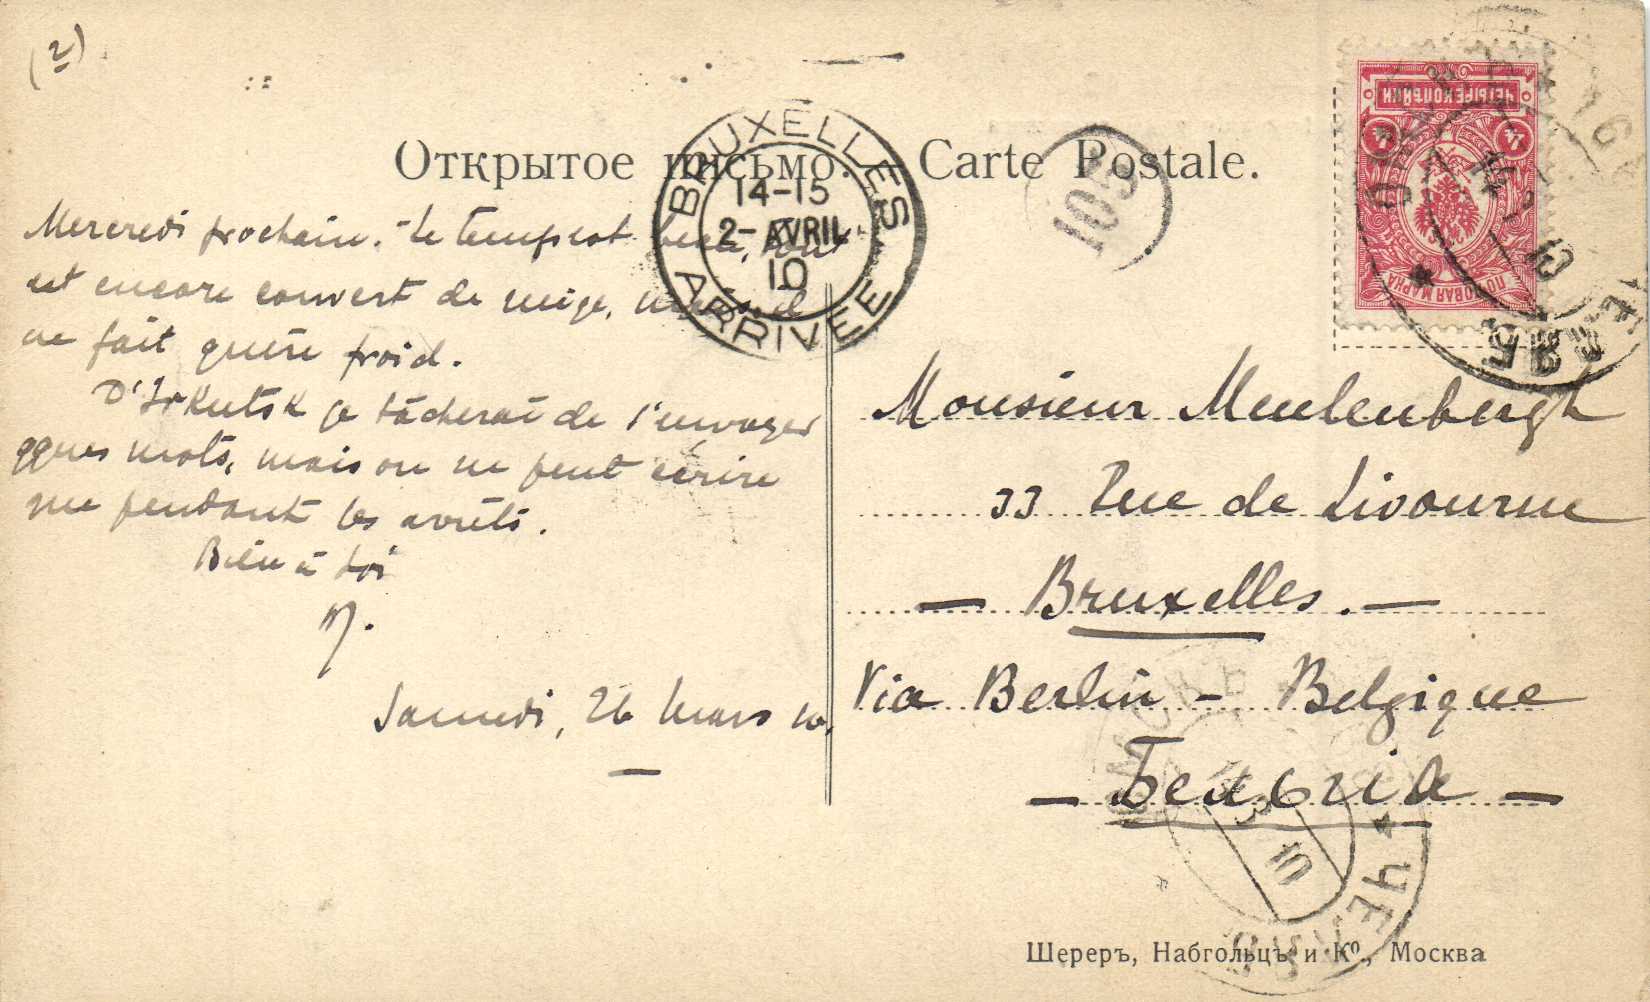 (2)
Открытое письмо. — Carte Postale.
BRUXELLES
14-15
2- AVRIL
10
ARRIVEE
105
ЧЕТЫРЕ КОПѢЙКИ
4 4
ПОЧТОВАЯ МАРКА
Mercredi prochain. - Le temps est beau, tout
est encore couvert de neige, mais il
ne fait guère froid.
D'Irkutsk je tâcherai de t'envoyer
qques mots, mais on ne peut écrire
que pendant les arrêts.
Bien à toi
M.
Samedi, 26 mars 10.
Monsieur Meulenbergh
33 Rue de Livourne
— Bruxelles. —
Via Berlin - Belgique
— Бельгiя —
3
10
ЧЕЛЯБ
Шереръ, Набгольцъ и Кº., Москва